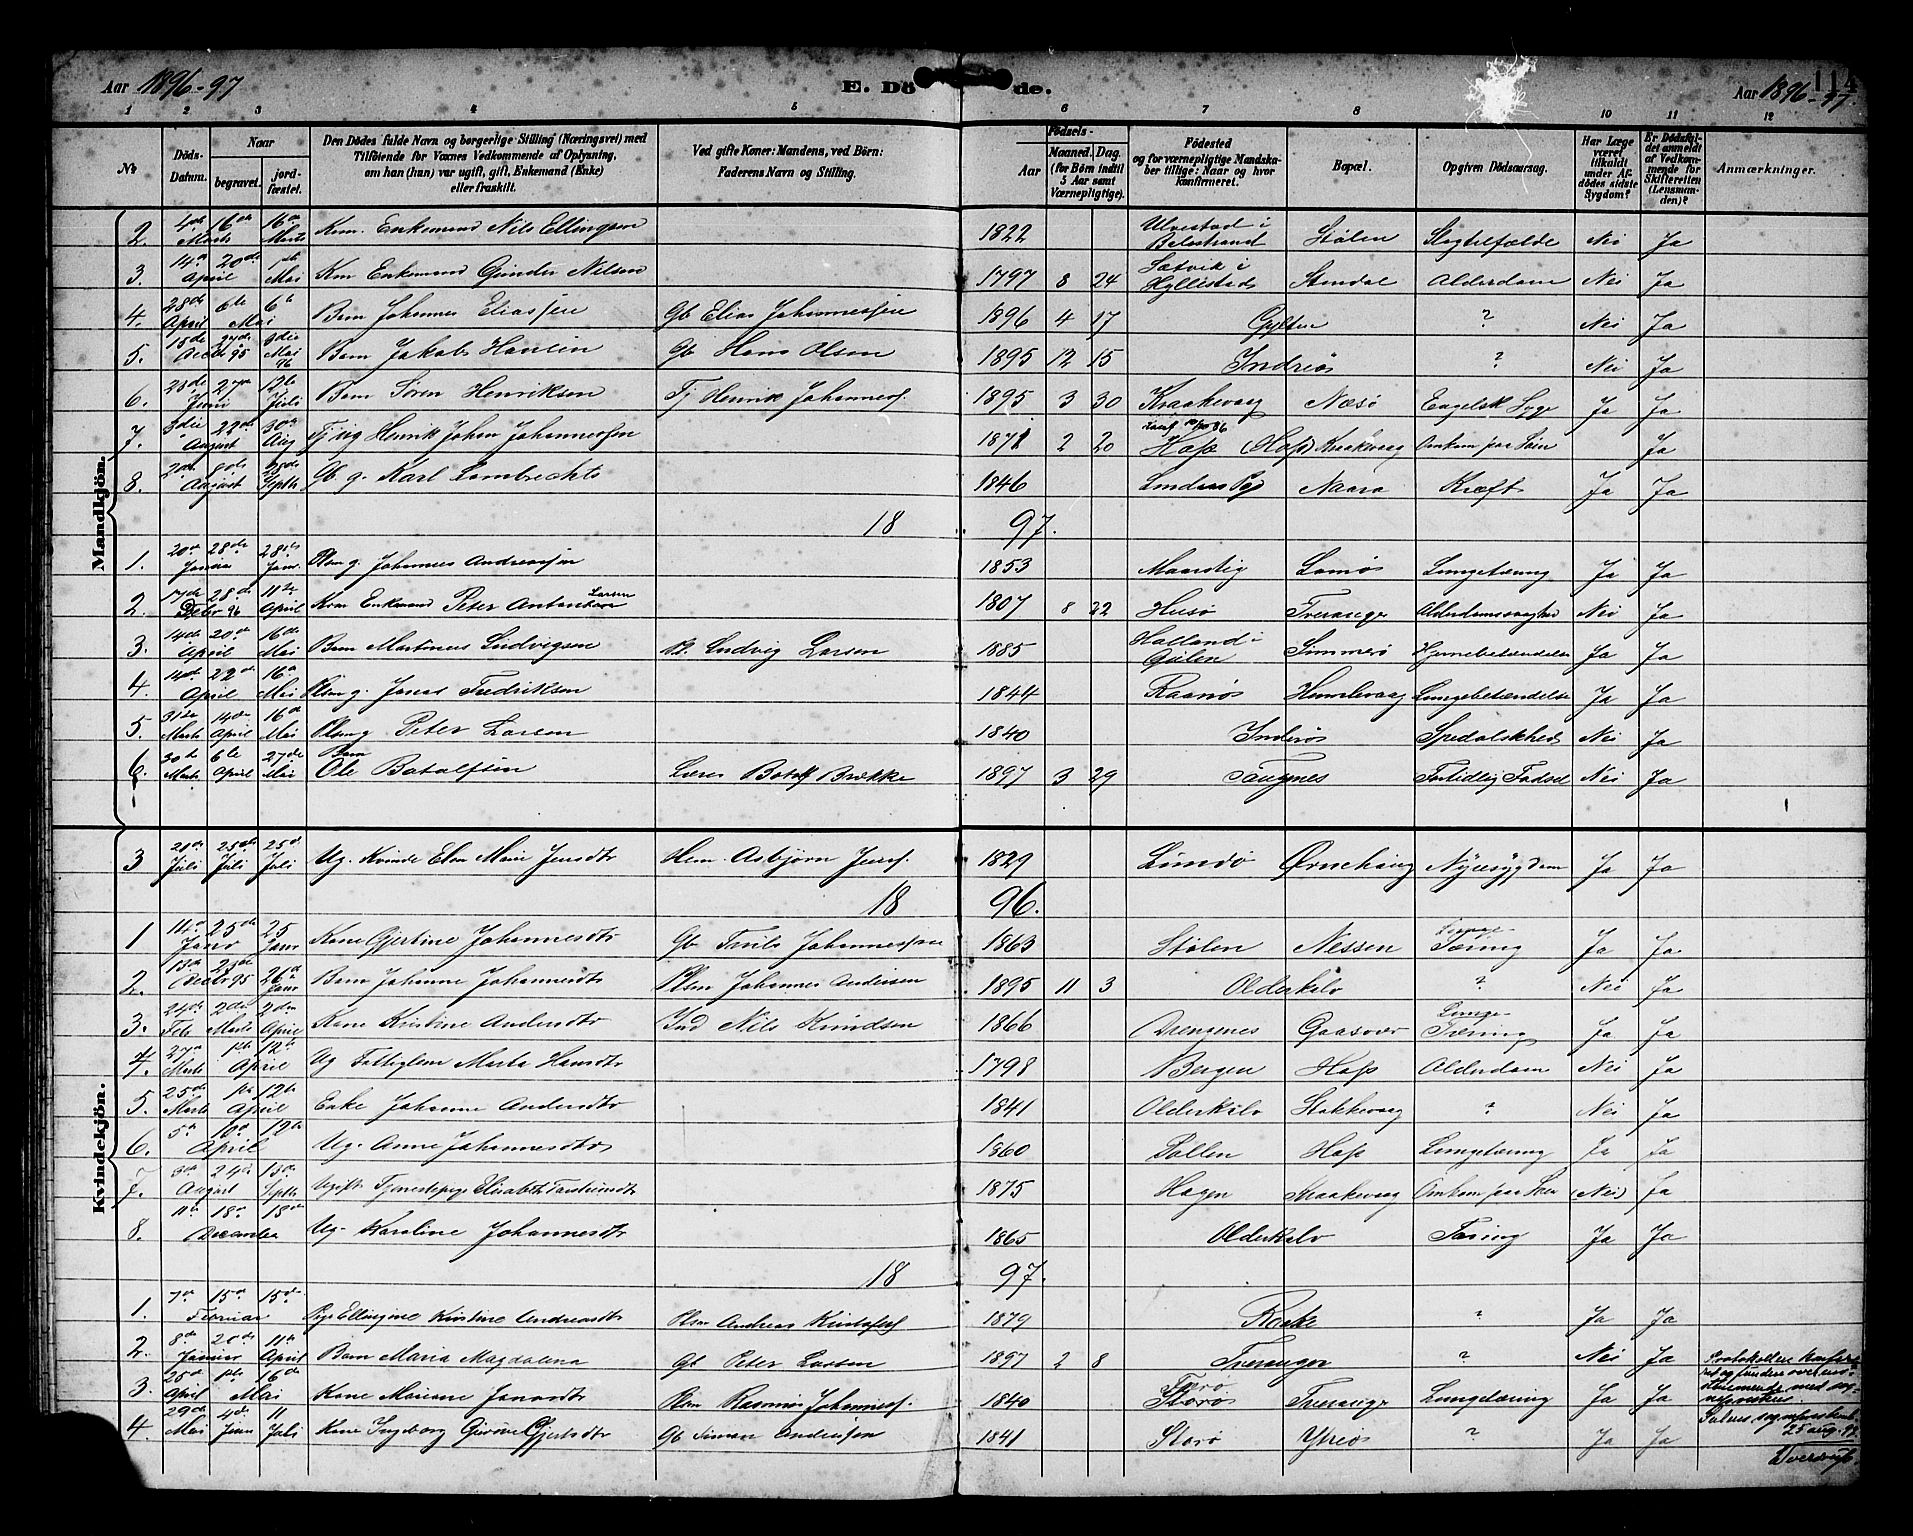 Aar 1896-97 E. Dö de. Aar 1896-97. 114
1 2 3 4 5 6 7 8 10 11 12
No Döds-Datum. Naar begravet. jord-fæstet. Den Dödes fulde Navn og borgerlige Stilling (Næringsvei) med Tilföiende for Voxnes Vedkommende af Oplysning, om han (hun) var ugift, gift, Enkemand (Enke) eller fraskilt. Ved gifte Koner: Mandens, ved Börn: Faderens Navn og Stilling. Födsels- Aar Maaned. Dag. (for Börn indtil 5 Aar samt Værnepligtige). Födested og for værnepligtige Mandskaber tillige: Naar og hvor konfirmeret. Bopæl. Opgiven Dödsaarsag. Har Læge været tilkaldt under Afdödes sidste Sygdom? Er Dödsfaldet anmeldt af Vedkommende for Skifteretten (Lensmanden)? Anmærkninger.
Mandkjön.
2. 4de Marts 16de 16de Marts Kaar. Enkemand Nils Ellingsen 1822 Ulvestad i Balestrand Stölen Slagtilfælde Nei Ja
3. 14de April 20de 1ste Mai Kaar Enkemand Gunder Nilsen 1797 8 24 Sætvik i Hyllestad Stendal Alderdom Nei Ja
4. 28de April 6te 6te Mai Barn Johannes Eliassen Gb Elias Johannessen 1896 4 17 Gylten ? Nei Ja
5. 15de Decbr 95 3die Mai 96 Barn Jakob Hansen Gb Hans Olsen 1895 12 15 Indreøs ? Nei Ja
6. 23de Juni 27de 12te Juli Barn Sören Henriksen Tj Henrik Johannesf. 1895 3 30 Kraakevaag Næsø Engelsk Syge Ja Ja
7. 3die August 22de 30te Aug Tj ug Henrik Johan Johannessen 1871 2 20 Hop (Hop) Kraakevaag Omkom paa Søen Ja
8. 2de August 8de Septbr Gb. g. Karl Lambrechts 1846 Lindaas Pgj Naara Kræft Ja Ja
1897.
1. 20de 28de Januar 28de Janr. Plsm g. Johannes Andreassen 1853 Maarstig Lamøs Lungetæring Ja Ja
2. 17de Decbr 96 28de 11te April Kaar Enkemand Peter Anton Larsen 1807 8 22 Husø Tveranger Alderdomssvaghed Nei Ja
3. 14de April 20de 16de Mai Barn Martinus Ludvigsen Pl. Ludvig Larsen 1885 Halland i Gulen Simmerø Hjernebetændelse Ja Ja
4. 14de April 22de 16de Mai Plsm g. Jonas Fredriksen 1844 Raanøs Humlevaag Lungebetændelse Ja Ja
5. 31te Marts 14de April 16de Mai Plsm g Peter Larsen 1840 Indreøs Spedalskhed Nei Ja
6. 30te Marts 6te April 27de Mai Barn Ole Batalfsen Lærer Batalf Brække 1897 3 29 Taugnes Fortidlig Fødsel Nei Ja
Kvindekjön.
3 20de Juli 25de Juli 25de Juli Ug. Kvinde Elen Marie Jensdtr Hem. Asbjørn Jensf. 1829 Limdø Ørnehaug Nyresygdom Ja Ja
1896.
1 14de 25de Janr 25 Janr Kone Gjertine Johannesdtr Gb Truls Johannessen 1863 Stölen Nessen Tæring Ja Ja
2. 13de Decbr 95 26de Janr Barn Johanne Johannesdtr Plsm Johannes Andersen 1895 11 3 Olderkalv ? Nei Ja
3. 24de Febr 2den Marts 2den April Kone Kristine Andersdtr Ind Nils Knudsen 1866 Drengenes Gaasvær Lunge-Tæring Ja Ja
4. 27de Marts 1ste 12te April Ug Fattiglem Marta Hansdtr 1798 Bergen Hop Alderdom Nei Ja
5. 25de Marts 1ste 12te April Enke Johanne Andersdtr 1841 Olderkalv Stokkevaag ? Nei Ja
6. 5te 10de 12te April Ug. Anne Johannesdtr 1860 Pollen Hop Lungetæring Ja Ja
7. 3die August 24de 13de Septbr Ugift Tjenestepige Elisabeth 1875 Hagen Kraakevaag Omkom paa Søen (Nei) Ja
8. 11te 18de 18de December Ug. Karoline Johannesdtr 1865 Olderkalv Tæring Ja Ja
1897.
1. 7de 15de 15de Februar Pige Ellingine Kristine Andreasdtr Plsm Andreas Kristofersf 1879 Raake ? Ja Ja
2. 8de Januar 20de 11te April Barn Maria Magdalena Gb Peter Larsen 1897 2 8 Tveranger ? Nei Ja
3. 25de April 1ste 16de Mai Kone Mariane Jonasdtr Plsm Rasmus Johannesf. 1840 Storø Tveranger Lungetæring Ja Ja
4 29de Mai 4de Juni 11 Juli Kone Ingeborg Gurine Gjertsdtr Gb Simon Andersen 1841 Storø Ytreøs ? Ja Ja
Protokollen konfereret og funden overensstemmende med sognepræstens.
25 aug. 99.